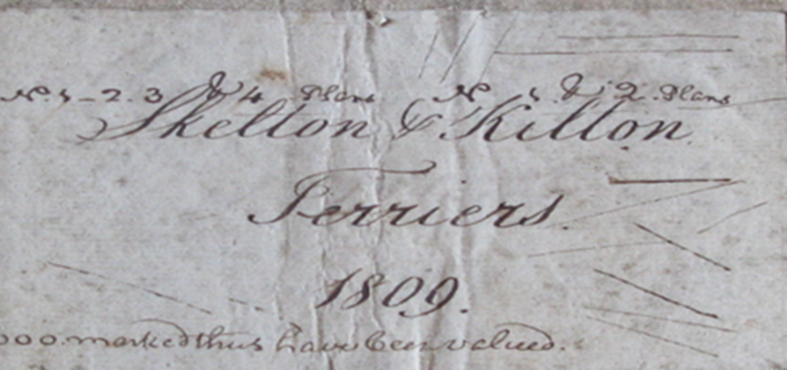 No. 1-2.3 & 4 Plans No. 1 & 2. Plans
Skelton & Kilton
Terriers.
1809.
000. marked thus have been valued.